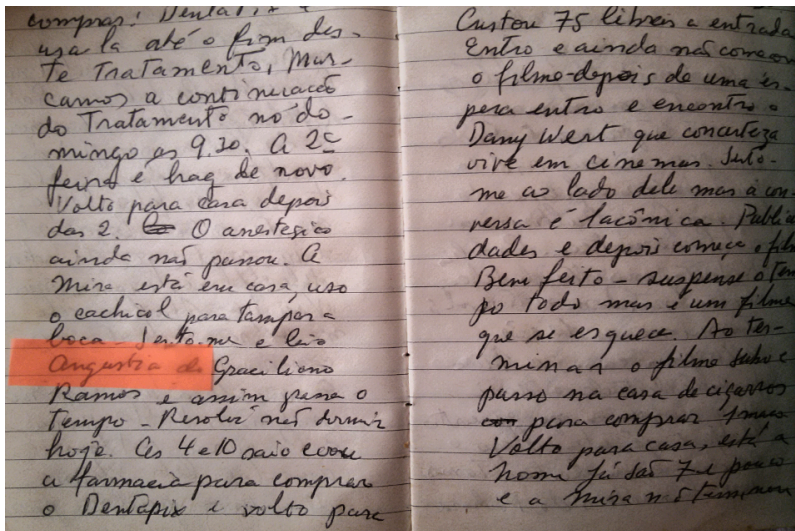 compras: Dentapix e
usa la até o fim des-
te Tratamento, Mar-
camos a continuação
do Tratamento no do-
mingo as 9.30. A 2ª
feira é hag de novo.
Volto para casa depois
das 2. O anestesico
ainda não passou. A
Mira está em casa, uso
o cachicol para tampar a
boca - Sento-me e leio
Angustia de Graciliano
Ramos e assim passa o
Tempo - Resolvi não dormir
hoje. As 4 e 10 saio
a farmacia para comprar
o Dentapix e volto para
Custou 75 libras a entrada
Entro e ainda não começou
o filme - depois de uma es-
pera entro e encontro o
Dany Wert que concerteza
vive em cinemas. Sento-
me ao lado dele mas a con-
versa é lacônica. Publici
dades e depois começa o film
Bem feito - suspense o tem
po todo mas é um filme
que se esquece. Ao ter-
minar o filme subo e
passo na casa de cigarros
para comprar
Volto para casa, está a
Nomi já são 7 e pouco
e a Mira não terminou